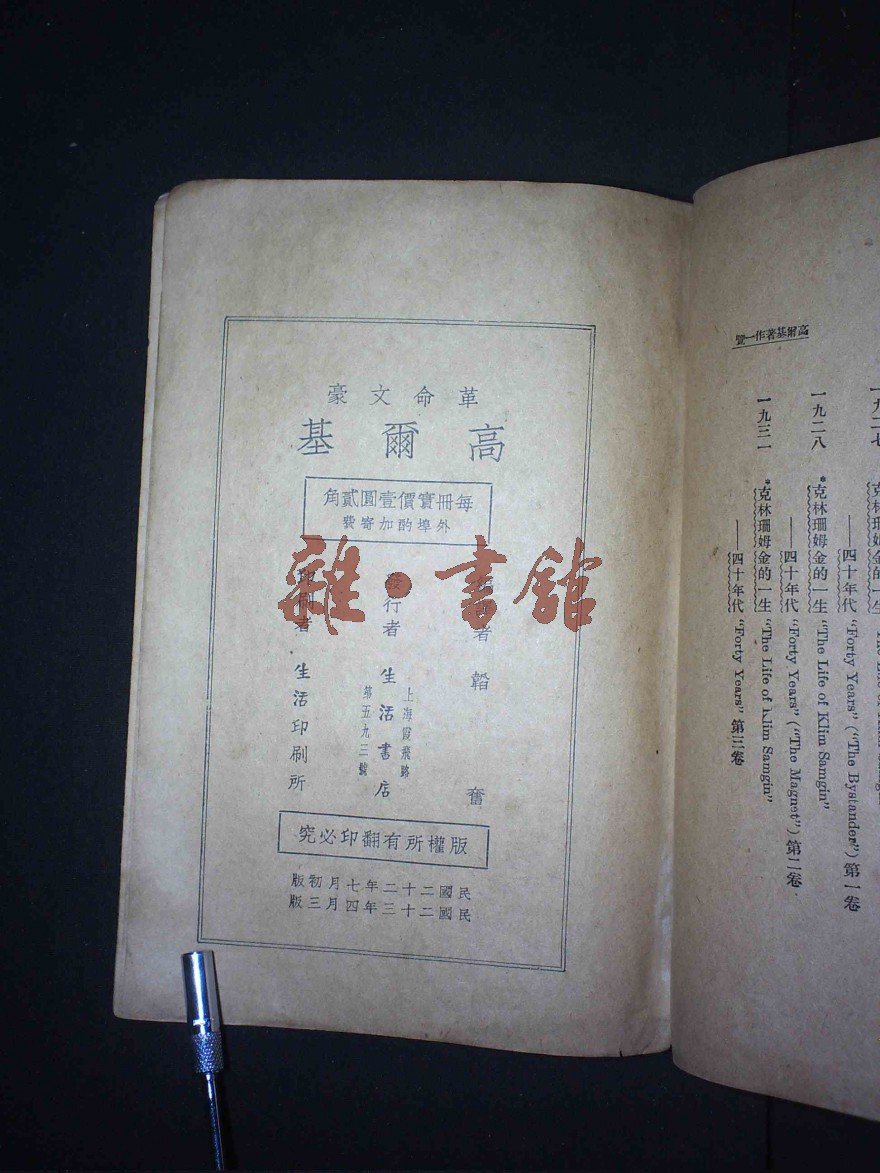 革命文豪
高爾基
每冊實價壹圓貳角
外埠酌加寄費
編譯者 韜奮
發行者 生活書店
上海霞飛路
第五九三號
印刷者 生活印刷所
版權所有翻印必究
民國二十二年七月初版
民國二十三年四月三版
雜·書館
高爾基著作一覽
一九二七
*克林珊姆金的一生 "The Life of Klim Samgin"
——四十年代 "Forty Years" ("The Bystander") 第一卷
一九二八
*克林珊姆金的一生 "The Life of Klim Samgin"
——四十年代 "Forty Years" ("The Magnet") 第二卷
一九三一
*克林珊姆金的一生 "The Life of Klim Samgin"
——四十年代 "Forty Years" 第三卷